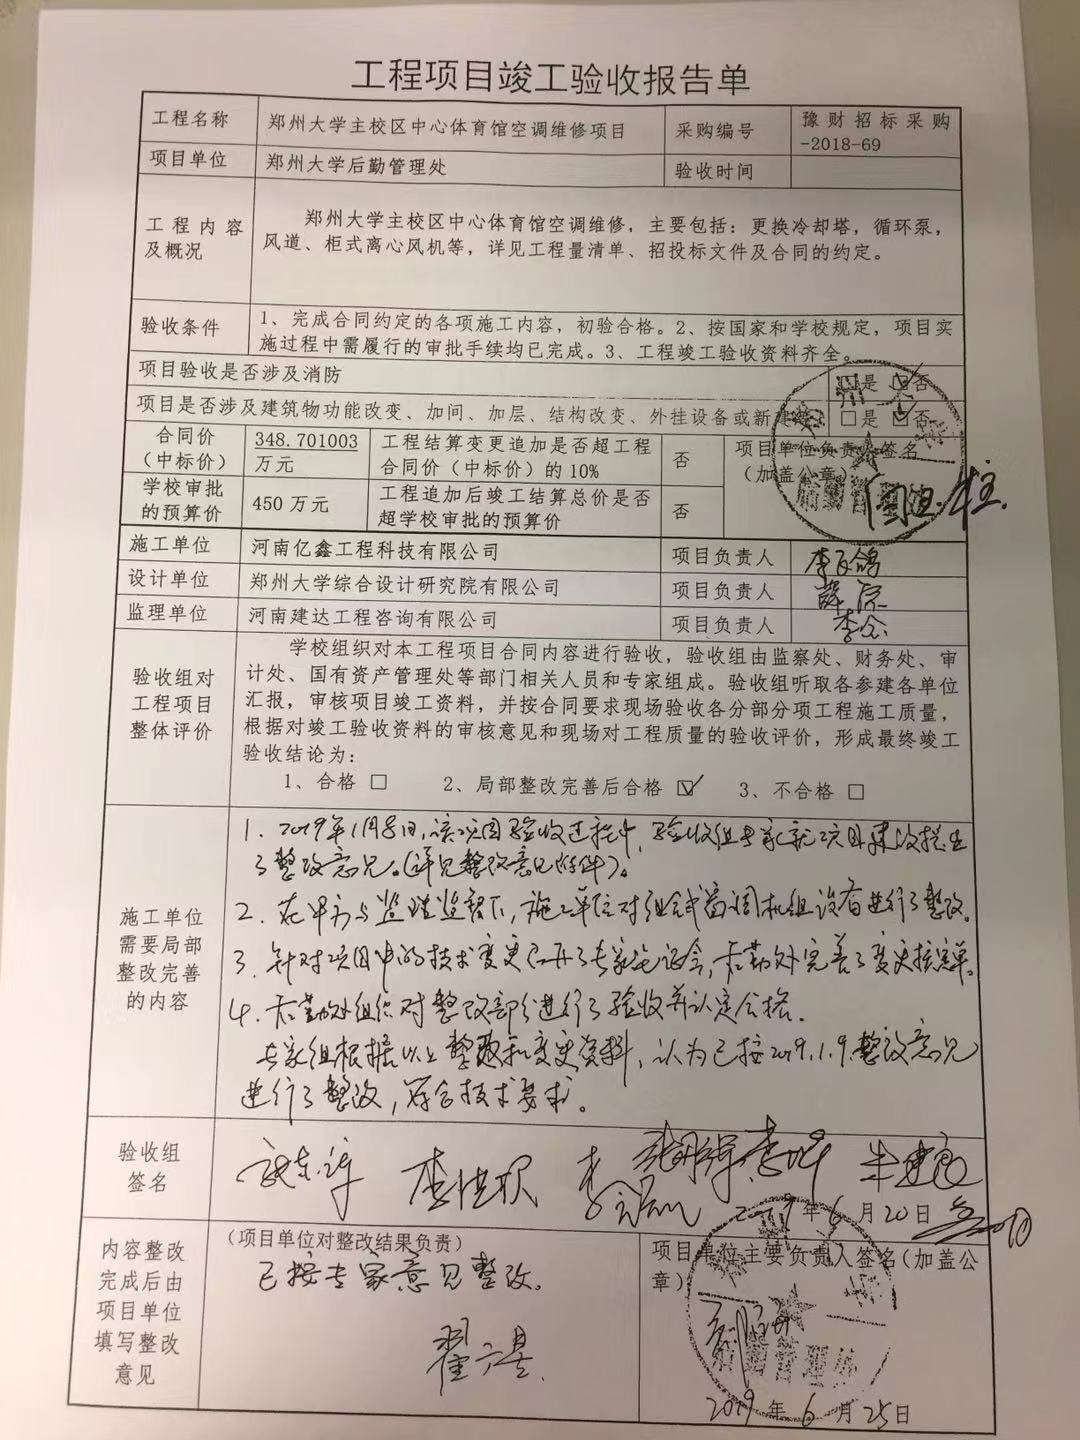 工程项目竣工验收报告单
工程名称 郑州大学主校区中心体育馆空调维修项目 采购编号 豫财招标采购
-2018-69
项目单位 郑州大学后勤管理处 验收时间
工程内容
及概况
郑州大学主校区中心体育馆空调维修，主要包括：更换冷却塔，循环泵，
风道、柜式离心风机等，详见工程量清单、招投标文件及合同的约定。
验收条件
1、完成合同约定的各项施工内容，初验合格。2、按国家和学校规定，项目实
施过程中需履行的审批手续均已完成。3、工程竣工验收资料齐全。
项目验收是否涉及消防 □是 ☑否
项目是否涉及建筑物功能改变、加间、加层、结构改变、外挂设备或新建等 □是 ☑否
合同价
（中标价）
348.701003
万元
工程结算变更追加是否超工程
合同价（中标价）的10%
否
项目单位负责人签名
（加盖公章）
学校审批
的预算价
450万元
工程追加后竣工结算总价是否
超学校审批的预算价
否
施工单位 河南亿鑫工程科技有限公司 项目负责人
设计单位 郑州大学综合设计研究院有限公司 项目负责人
监理单位 河南建达工程咨询有限公司 项目负责人
验收组对
工程项目
整体评价
学校组织对本工程项目合同内容进行验收，验收组由监察处、财务处、审
计处、国有资产管理处等部门相关人员和专家组成。验收组听取各参建各单位
汇报，审核项目竣工资料，并按合同要求现场验收各分部分项工程施工质量，
根据对竣工验收资料的审核意见和现场对工程质量的验收评价，形成最终竣工
验收结论为：
1、合格 □ 2、局部整改完善后合格 ☑ 3、不合格 □
施工单位
需要局部
整改完善
的内容
1. 2019年1月8日，该项目验收过程中，验收组专家就项目建设提出
了整改意见。（详见整改意见附件）。
2. 在甲方与监理监督下，施工单位对组合式空调机组设备进行了整改。
3. 针对项目中的技术变更召开了专家论证会，后勤处完善了变更核定单。
4. 后勤处组织对整改部分进行了验收并认定合格.
专家组根据以上整改和变更资料，认为已按2019.1.9.整改意见
进行了整改，符合技术要求。
验收组
签名
2019年6月20日
内容整改
完成后由
项目单位
填写整改
意见
（项目单位对整改结果负责）
已按专家意见整改.
项目单位主要负责人签名（加盖公
章）
2019年6月25日